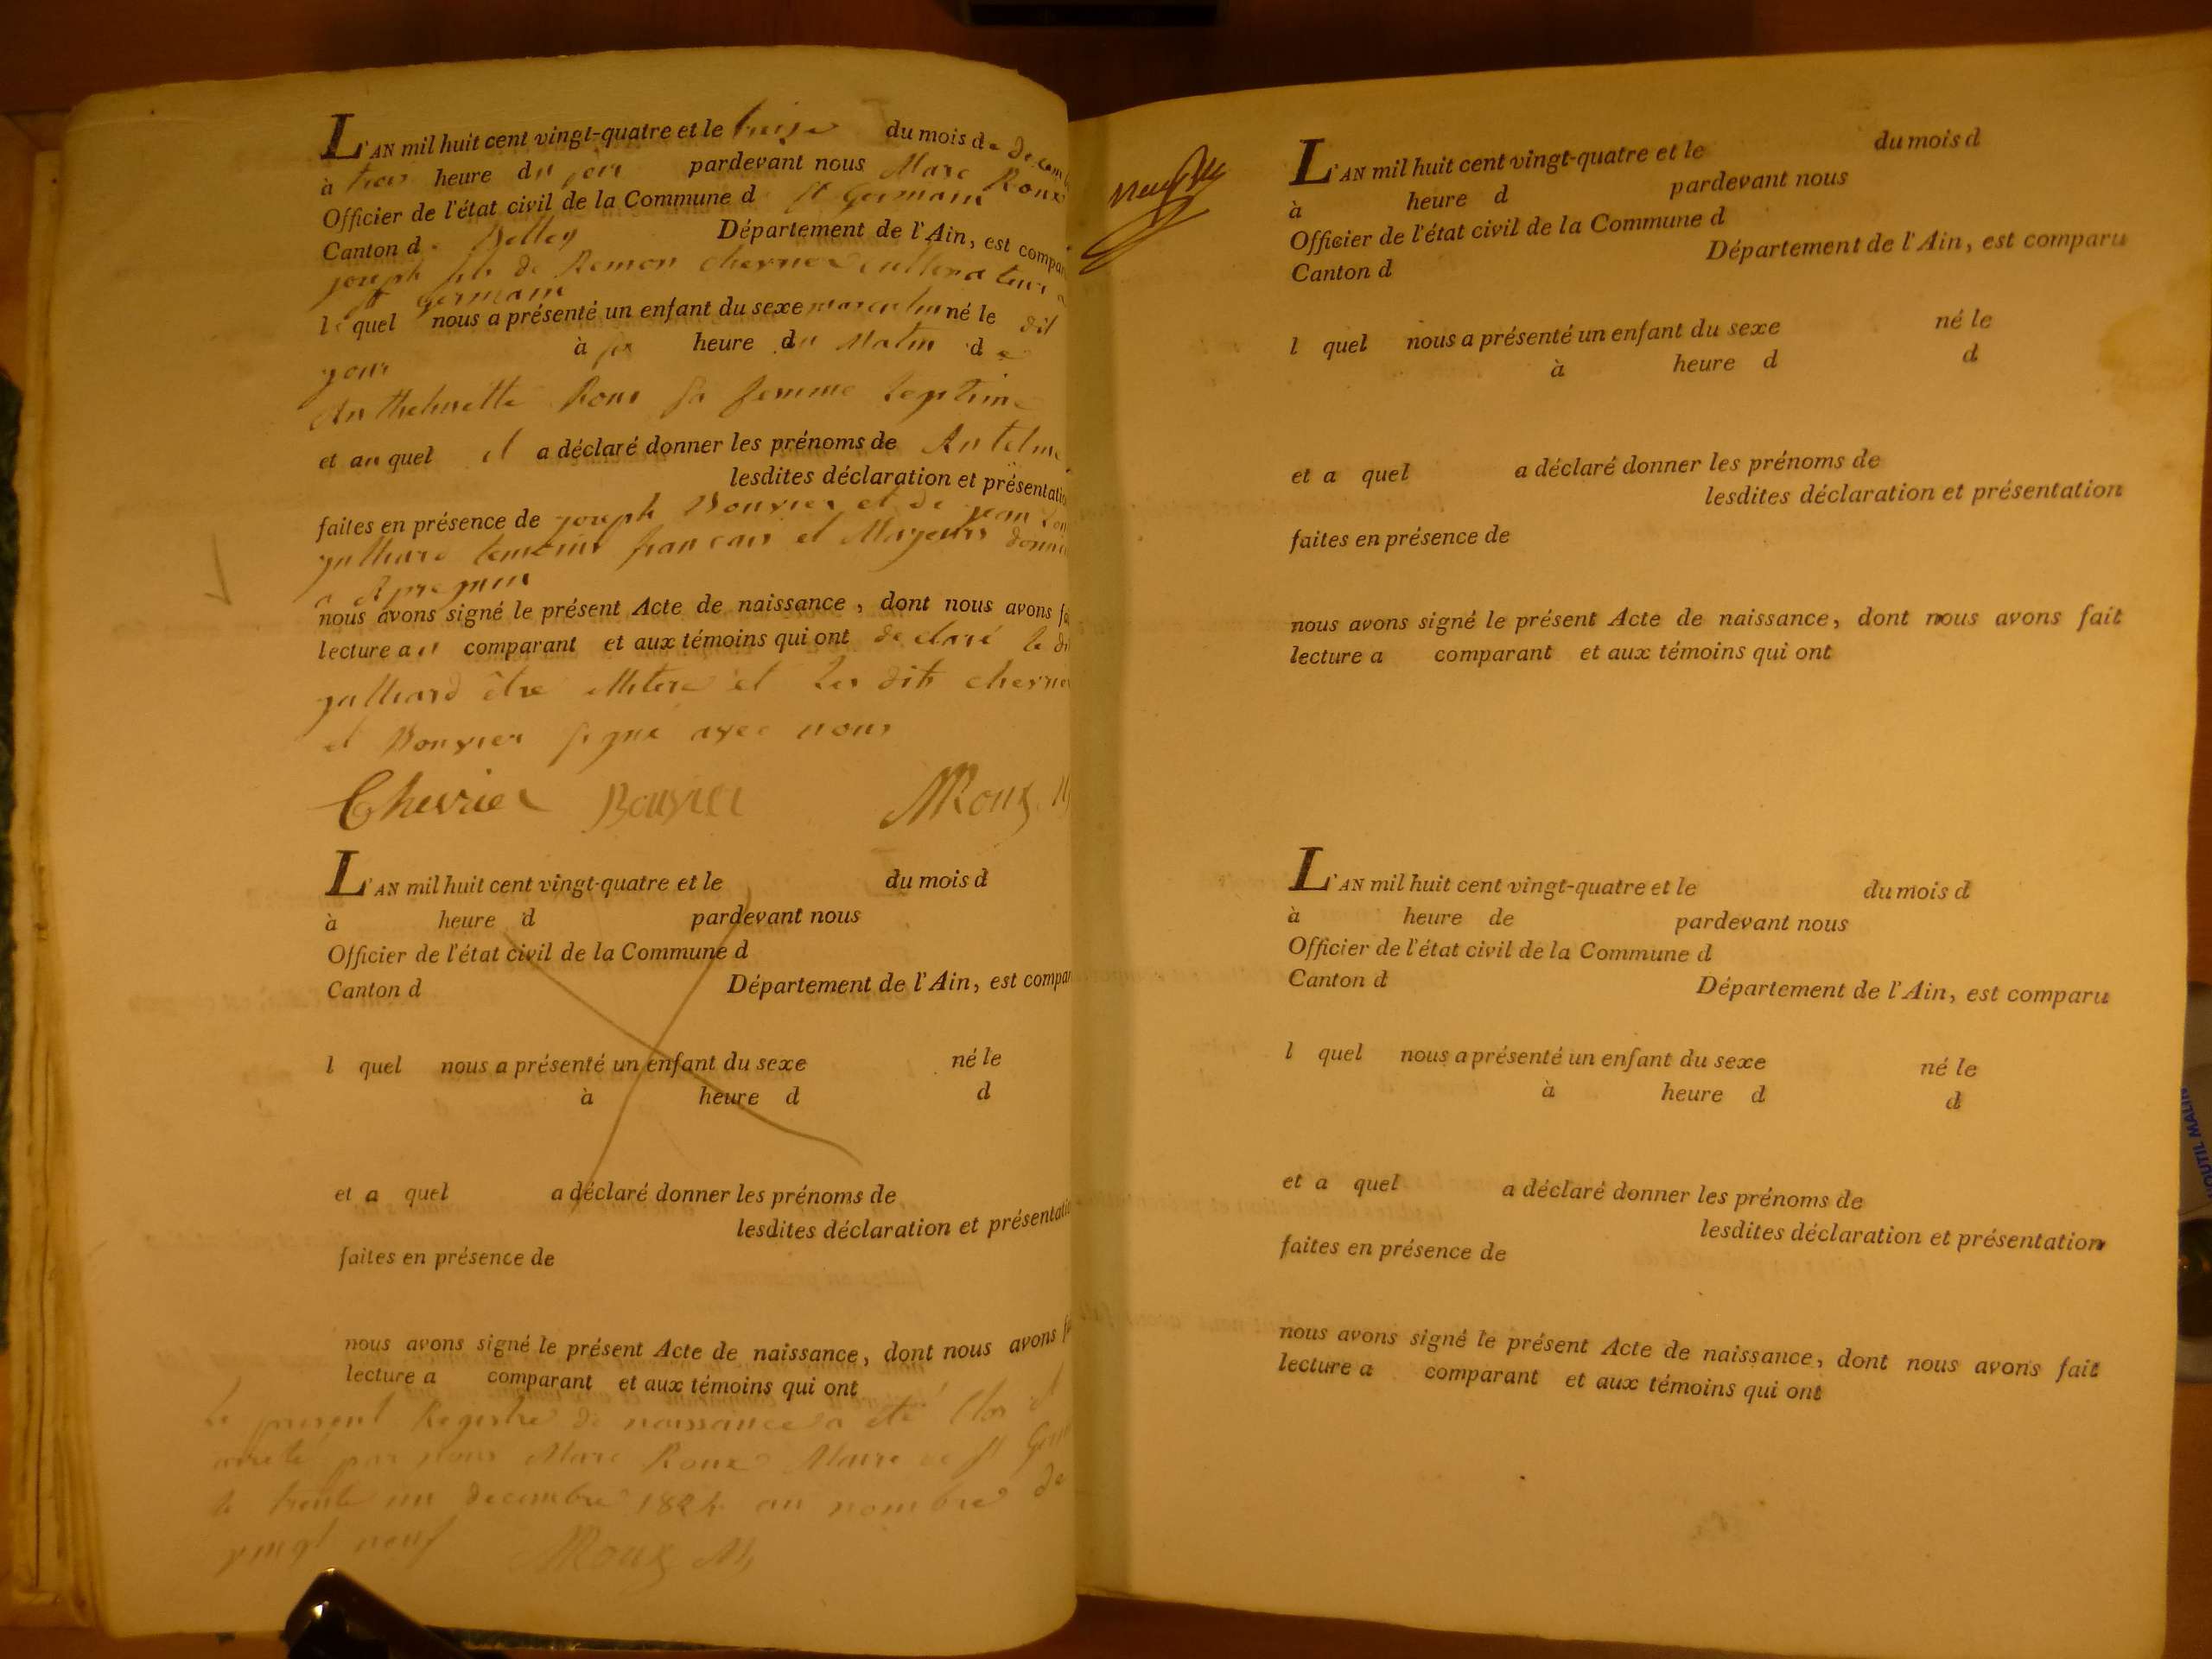 L'AN mil huit cent vingt-quatre et le treize du mois de decemb
à trois heure du soir pardevant nous Marc Roux
Officier de l'état civil de la Commune d St Germain
Canton de Belley Département de l'Ain, est compar
joseph fils de Remon chevrier cultivateur a
St Germain
le quel nous a présenté un enfant du sexe masculin né le dit
jour à six heure du Matin de
Anthelmette Roux sa femme legitime
et au quel il a déclaré donner les prénoms de Antelme
lesdites déclaration et présentatio
faites en présence de joseph Bouvier et de jean
galliard temoins francais et Majeurs domi
a Apregnin
nous avons signé le présent Acte de naissance, dont nous avons fa
lecture au comparant et aux témoins qui ont declaré le di
galliard être illitere et les dits chevrier
et Bouvier signé avec nous
Chevrier Bouvier MRoux M
L'AN mil huit cent vingt-quatre et le du mois d
à heure d pardevant nous
Officier de l'état civil de la Commune d
Canton d Département de l'Ain, est compar
l quel nous a présenté un enfant du sexe né le
à heure d d
et a quel a déclaré donner les prénoms de
lesdites déclaration et présentatio
faites en présence de
nous avons signé le présent Acte de naissance, dont nous avons fa
lecture a comparant et aux témoins qui ont
Le present Registre de naissance a été Clos et
arreté par nous Marc Roux Maire de St Germ
le trente un decembre 1824 au nombre de
vingt neuf MRoux M
neuf
L'AN mil huit cent vingt-quatre et le du mois d
à heure d pardevant nous
Officier de l'état civil de la Commune d
Canton d Département de l'Ain, est comparu
l quel nous a présenté un enfant du sexe né le
à heure d d
et a quel a déclaré donner les prénoms de
lesdites déclaration et présentation
faites en présence de
nous avons signé le présent Acte de naissance, dont nous avons fait
lecture a comparant et aux témoins qui ont
L'AN mil huit cent vingt-quatre et le du mois d
à heure de pardevant nous
Officier de l'état civil de la Commune d
Canton d Département de l'Ain, est comparu
l quel nous a présenté un enfant du sexe né le
à heure d d
et a quel a déclaré donner les prénoms de
lesdites déclaration et présentation
faites en présence de
nous avons signé le présent Acte de naissance, dont nous avons fait
lecture a comparant et aux témoins qui ont
OUTIL MALIN